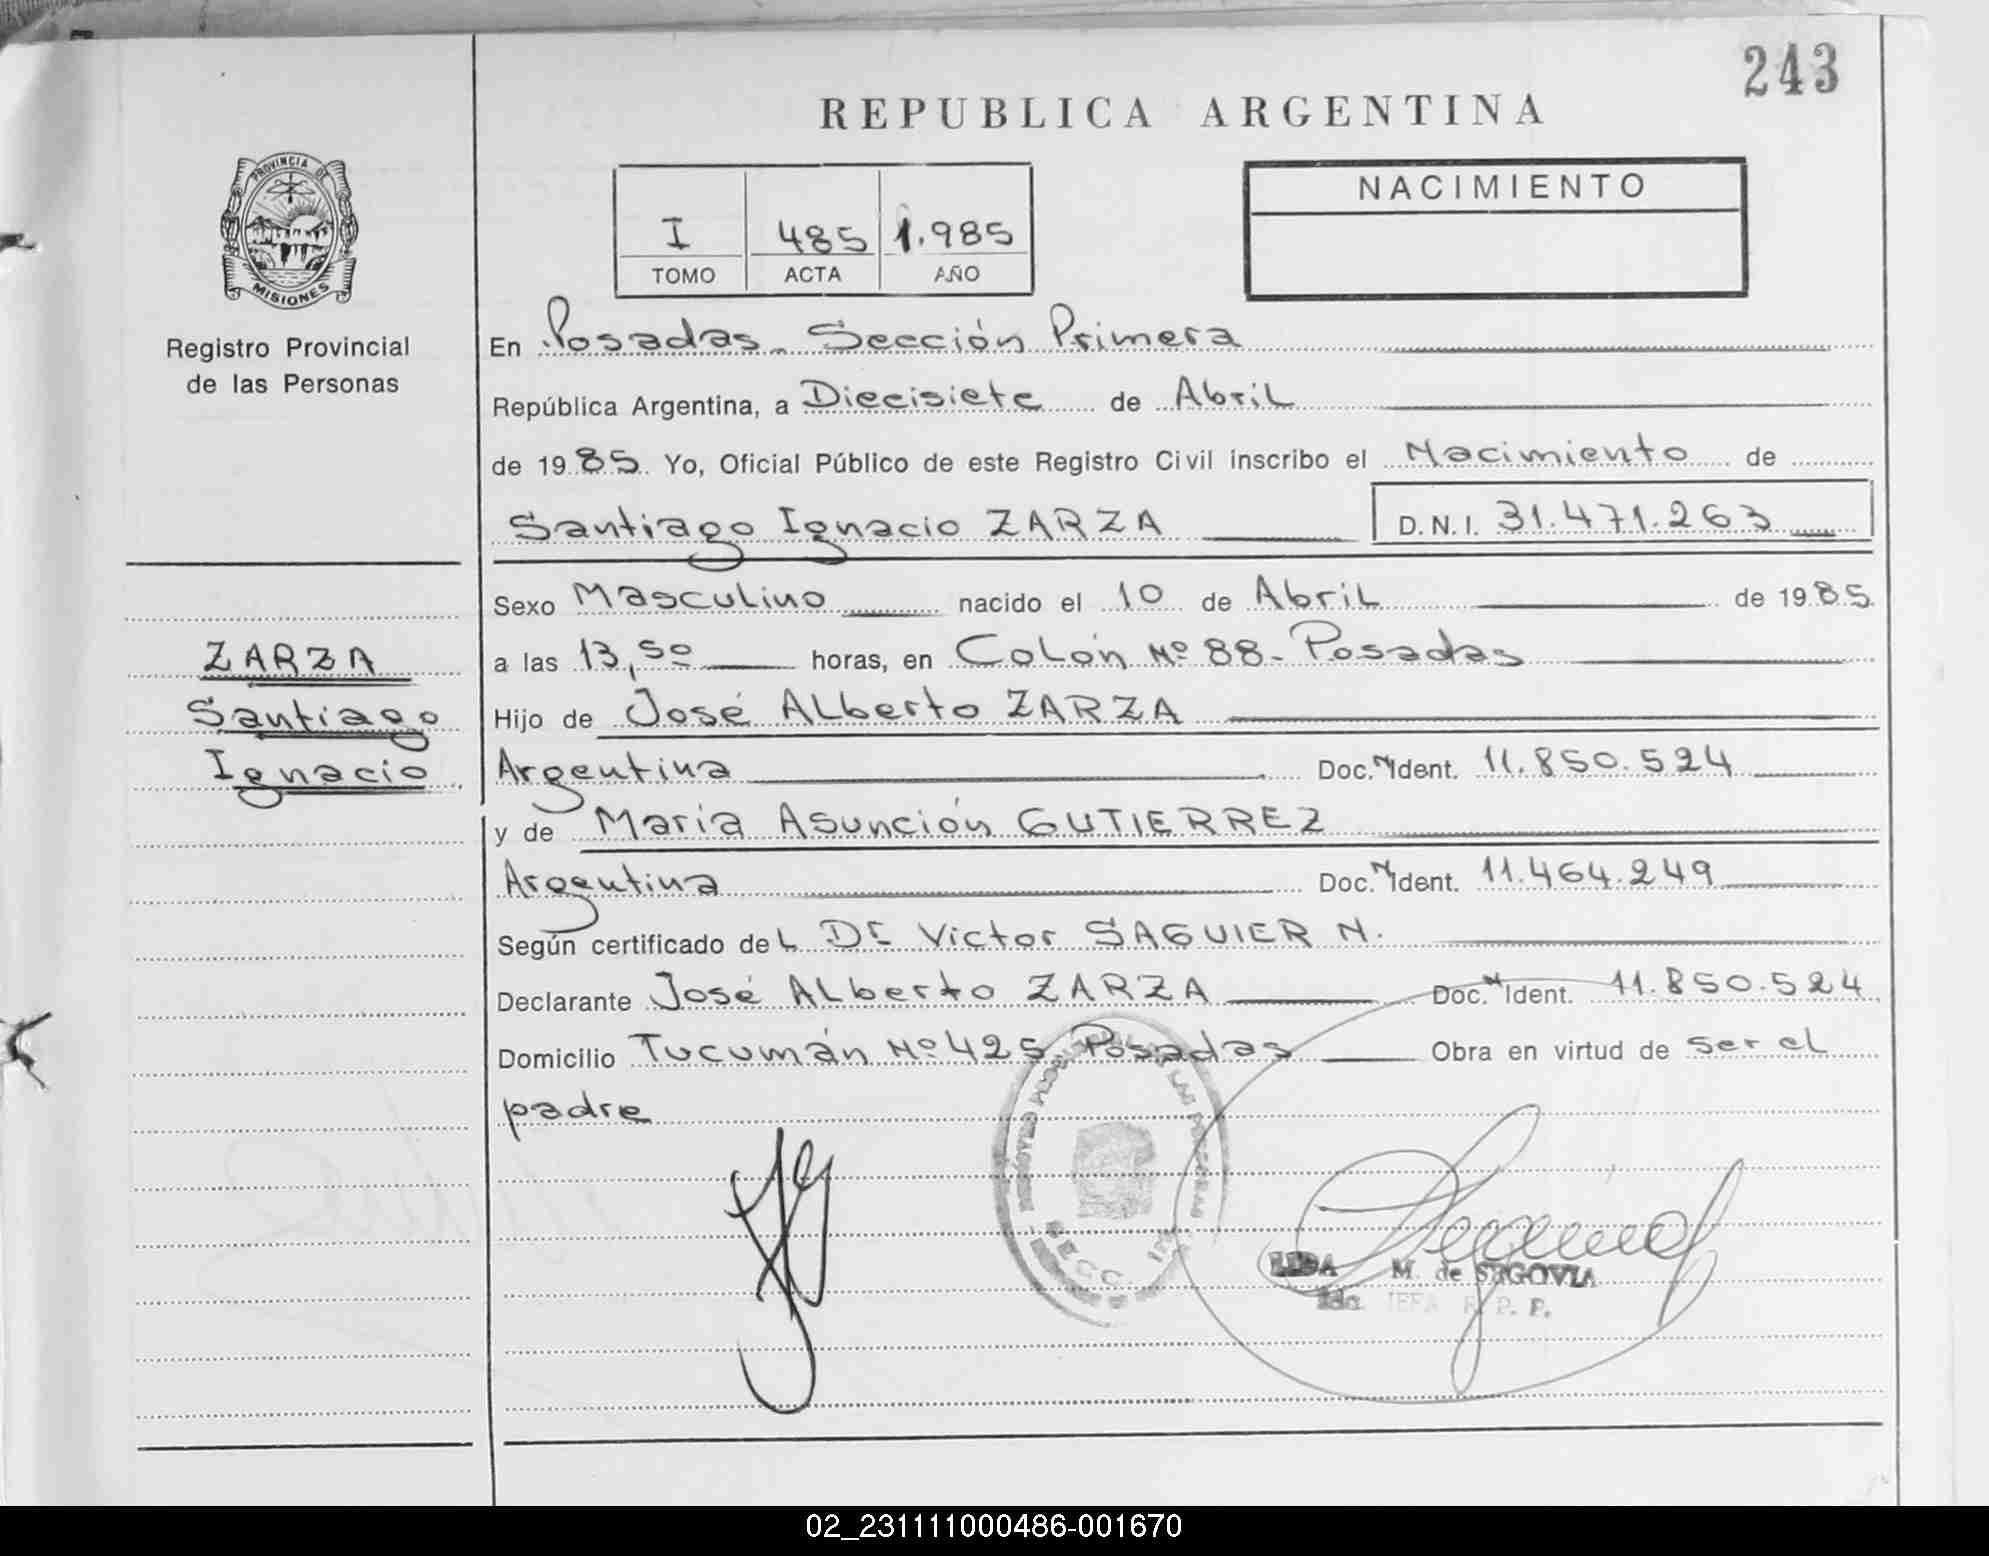 243
REPUBLICA ARGENTINA
PROVINCIA DE
MISIONES
Registro Provincial
de las Personas
I 485 1.985
TOMO ACTA AÑO
NACIMIENTO
En Posadas - Sección Primera
República Argentina, a Diecisiete de Abril
de 1985. Yo, Oficial Público de este Registro Civil inscribo el Nacimiento de
Santiago Ignacio ZARZA D.N.I. 31.471.263
Sexo Masculino nacido el 10 de Abril de 1985
a las 13,50 horas, en Colón Nº 88 - Posadas
ZARZA
Santiago
Ignacio
Hijo de José Alberto ZARZA
Argentina Doc. N Ident. 11.850.524
y de María Asunción GUTIERREZ
Argentina Doc. N Ident. 11.464.249
Según certificado del Dr Victor SAGUIER N.
Declarante José Alberto ZARZA Doc. N Ident. 11.850.524
Domicilio Tucumán Nº 425 Posadas Obra en virtud de ser el
padre
SECC.
M. de SEGOVIA
JEFA R. P. P.
02_231111000486-001670